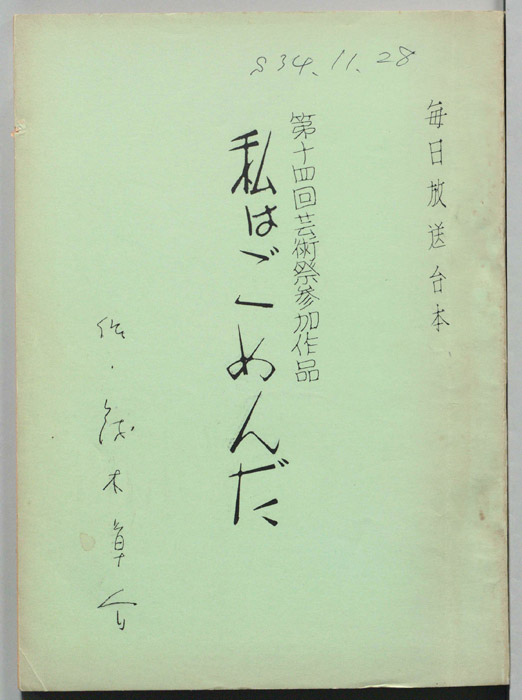 S34.11.28
毎日放送台本
第十四回芸術祭参加作品
私はごめんだ
作・茂木草介